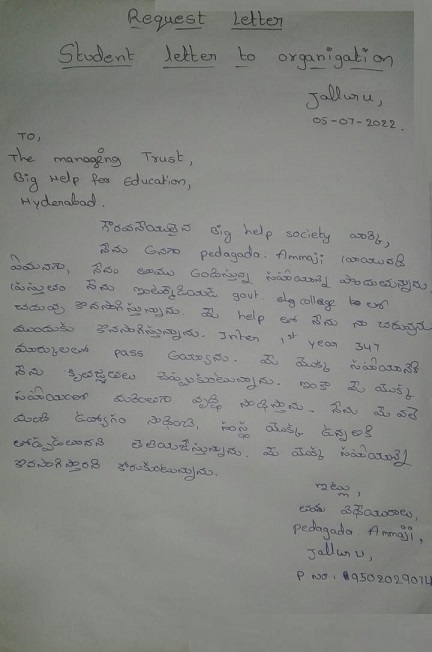 Request Letter
Student letter to organigation
Jalluru,
05-07-2022.
To,
The managing Trust,
Big Help for Education,
Hyderabad.
గౌరవనీయులైన Big help society వారికి,
నేను అనగా pedagada. Ammaji వ్రాయునది
ఏమనగా, నేను తాము అందిస్తున్న సహాయాన్ని పొందుచున్నాను.
ప్రస్తుతం నేను ఇంటర్మీడియట్ govt. college లో
చదువు కొనసాగిస్తున్నాను. మీ help తో నేను నా చదువును
ముందుకు కొనసాగిస్తున్నాను. Inter 1st year 347
మార్కులతో pass అయ్యాను. మీ యొక్క సహాయానికి
నేను కృతజ్ఞతలు చెప్పుకుంటున్నాను. ఇంకా మీ యొక్క
సహాయంతో మరింతగా వృద్ధి సాధిస్తాను. నేను మీ వలె
మంచి ఉద్యోగం సాధించి, సంస్థ యొక్క ఉన్నతికి
తోడ్పడతానని తెలియజేస్తున్నాను. మీ యొక్క సహాయాన్ని
కొనసాగిస్తారని కోరుకుంటున్నాను.
ఇట్లు,
తమ విధేయురాలు,
pedagada Ammaji,
Jalluru,
P no: 9502029014